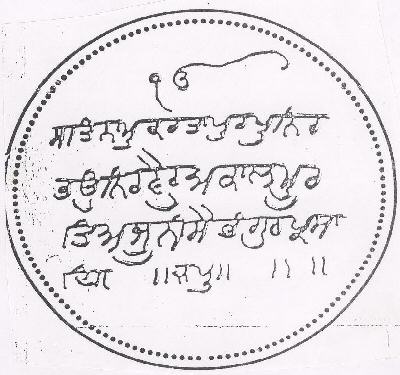 ੴ
ਸਤਿਨਾਮੁਕਰਤਾਪੁਰਖੁਨਿਰ
ਭਉਨਿਰਵੈਰੁਅਕਾਲਮੂਰ
ਤਿਅਜੂਨੀਸੈਭੰਗੁਰਪ੍ਰਸਾ
ਦਿ ॥ਜਪੁ॥ ॥ ॥